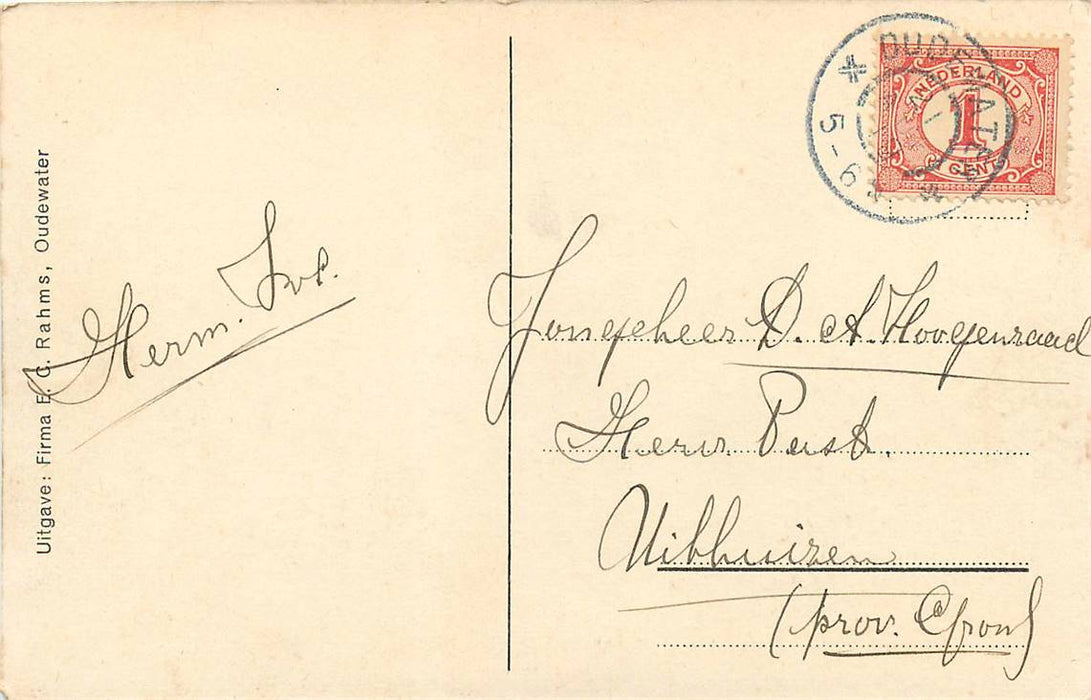 Uitgave: Firma E. C. Rahms, Oudewater
Herm.
OUDEWATER
5-6
NEDERLAND
1
CENT
D. A. Hoogenraad
Herv. Past.
Uithuizen
(prov. Gron)